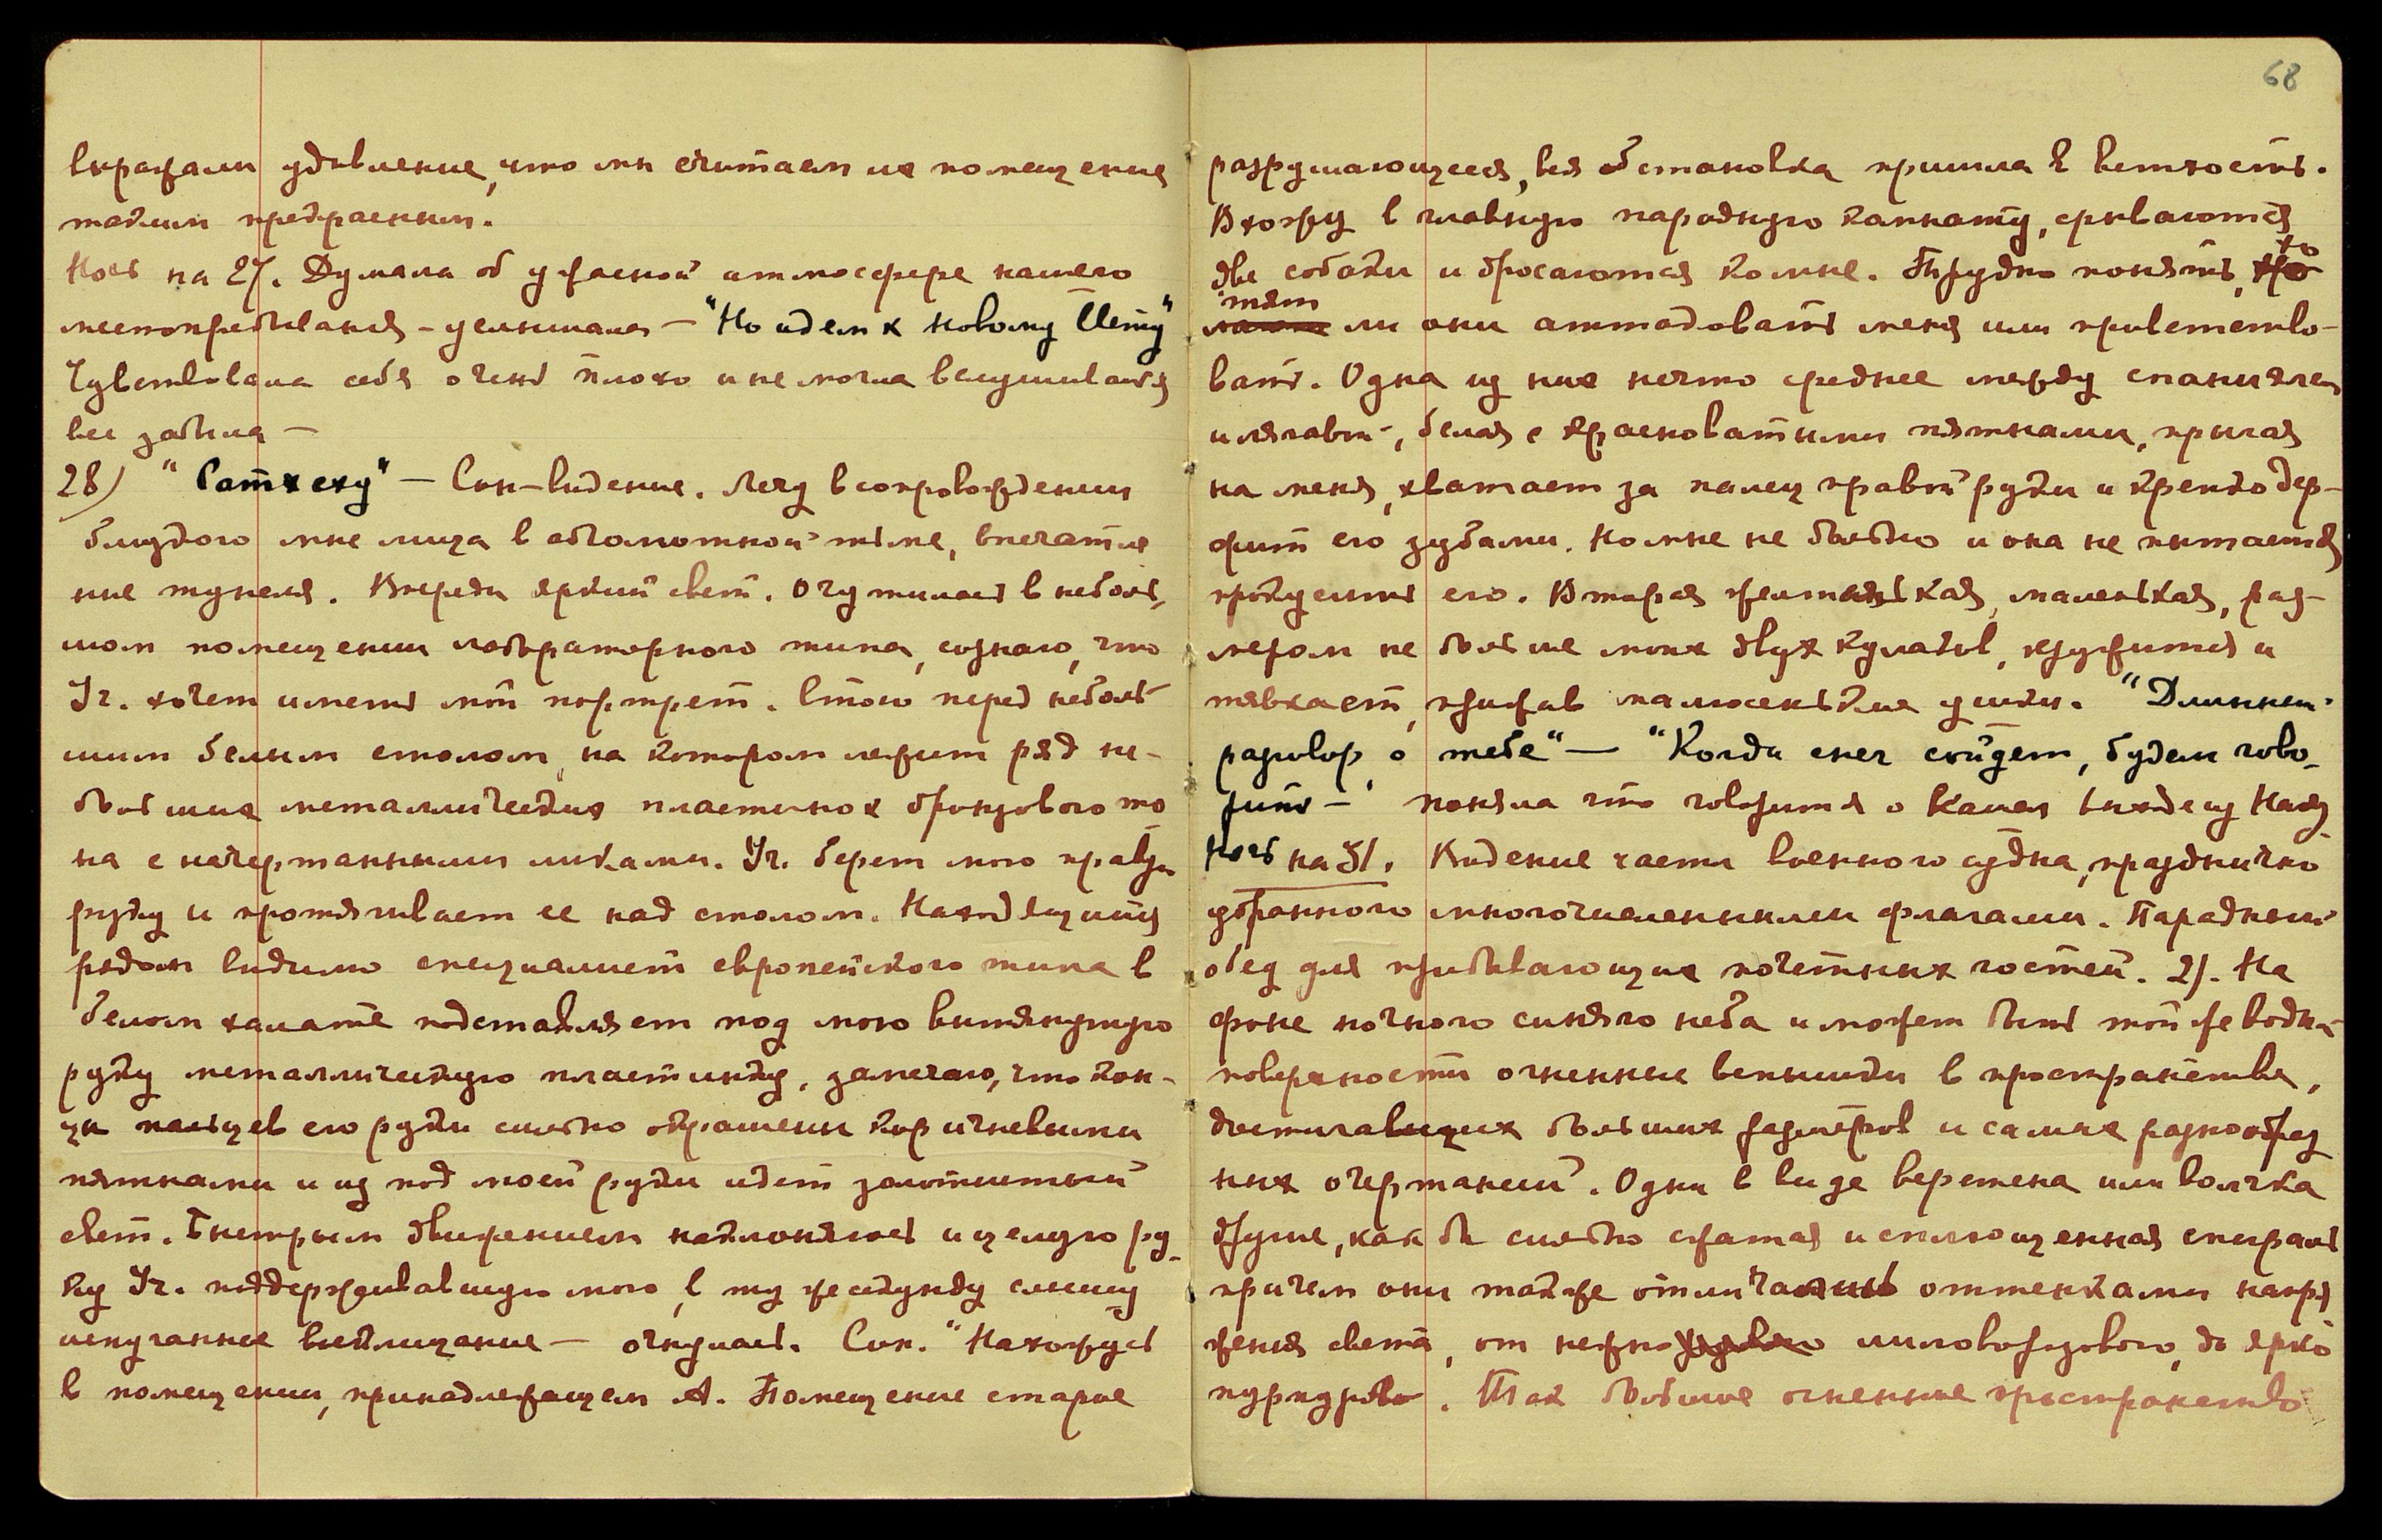 выражали удивление, что мы считаем их помещение
таким прекрасным.
Ночь на 27. Думала об ужасной атмосфере нашего
местопребывания – услышала – "Но идем к новому Щиту"
Чувствовала себя очень плохо и не могла вслушиваться
все забыла –
28) "Сатхеку" – Сон-видение. Лечу в сопровождении
близкого мне лица в абсолютной тьме, впечатле
ние тунеля. Впереди яркий свет. Очутилась в неболь,
шом помещении лабораторного типа, сознаю, что
Уч. хочет иметь мой портрет. Стою перед неболь-
шим белым столом, на котором лежит ряд не-
больших металлических пластинок бронзового то
на с начертанными ликами. Уч. берет мою правую
руку и протягивает ее над столом. Находящийся
рядом видимо специалист европейского типа в
белом халате подставляет под мою вытянутую
руку металлическую пластинку, замечаю, что кон-
цы пальцев его руки сильно окрашены коричневыми
пятнами и из под моей руки идет золотистый
свет. Быстрым движением наклоняюсь и целую ру-
ку Уч. поддерживавшую мою, в ту же секунду слышу
испуганное восклицание – очнулась. Сон. "Нахожусь
в помещении, принадлежащем А. Помещение старое
68
разрушающееся, вся обстановка пришла в ветхость.
Вхожу в главную парадную комнату, срываются
две собаки и бросаются ко мне. Трудно понять, хо
тят ли они аттаковать меня или приветство-
вать. Одна из них нечто среднее между спаниэлем
и лягавой, белая с красноватыми пятнами, прыгая
на меня, хватает за палец правой руки и крепко дер-
жит его зубами. Но мне не больно и она не пытается
прокусить его. Вторая желтенькая, маленькая, раз-
мером не больше моих двух кулаков, кружится и
тявкает, прижав малюсенькие ушки. "Длиннен.
разговор о тебе" – "Когда снег сойдет, будем гово-
рить – " поняла что говорится о Нашем выходе из Нагг.
Ночь на 31. Видение части военного судна, празднично
убранного многочисленными флагами. Парадный
обед для прибывающих почетных гостей. 2). На
фоне ночного синяго неба и может быть той же водной
поверхности огненные вспышки в пространстве,
достигавших больших размеров и самых разнообраз
ных очертаний. Одни в виде веретена или волчка
другие, как бы сильно сжатая и сплющенная спираль
причем они также отличались оттенками напря
жения света, от нежно лиловорозового, до ярко
пурпурово. Так большое огненное пространство